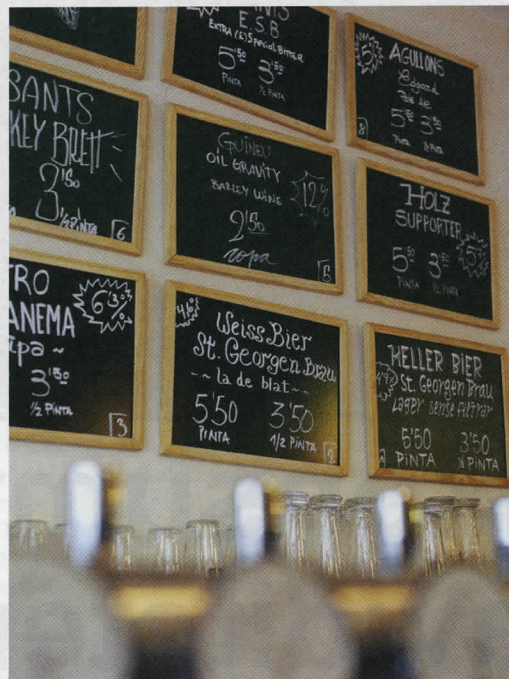 E.S.B
EXTRA (E)SPECIAL BITTER
5'50 3'50
PINTA ½ PINTA
5%
AGULLONS
Pale Ale
5'50 3'50
PINTA
8
SANTS
KEY BRETT
3'50
½ PINTA
6
GUINEU
OIL GRAVITY
BARLEY WINE
12%
2'50
copa
5
HOLZ
SUPPORTER
5%
5'50 3'50
PINTA ½ PINTA
RO
6'3%
ANEMA
ipa ~
3'50
½ PINTA
3
4'6%
Weiss Bier
St. Georgen Bräu
~ la de blat ~
5'50 3'50
PINTA 1/2 PINTA
2
KELLER BIER
St. Georgen Bräu
Lager sense filtrar
5'50 3'50
PINTA ½ PINTA